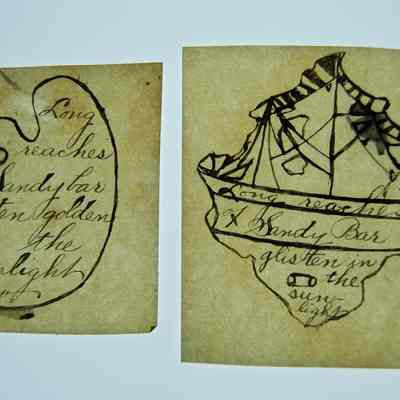 Long
reaches
sandy bar
ten golden
the
light
Long reaches
& Sandy Bar
glisten in
the
sun-
light